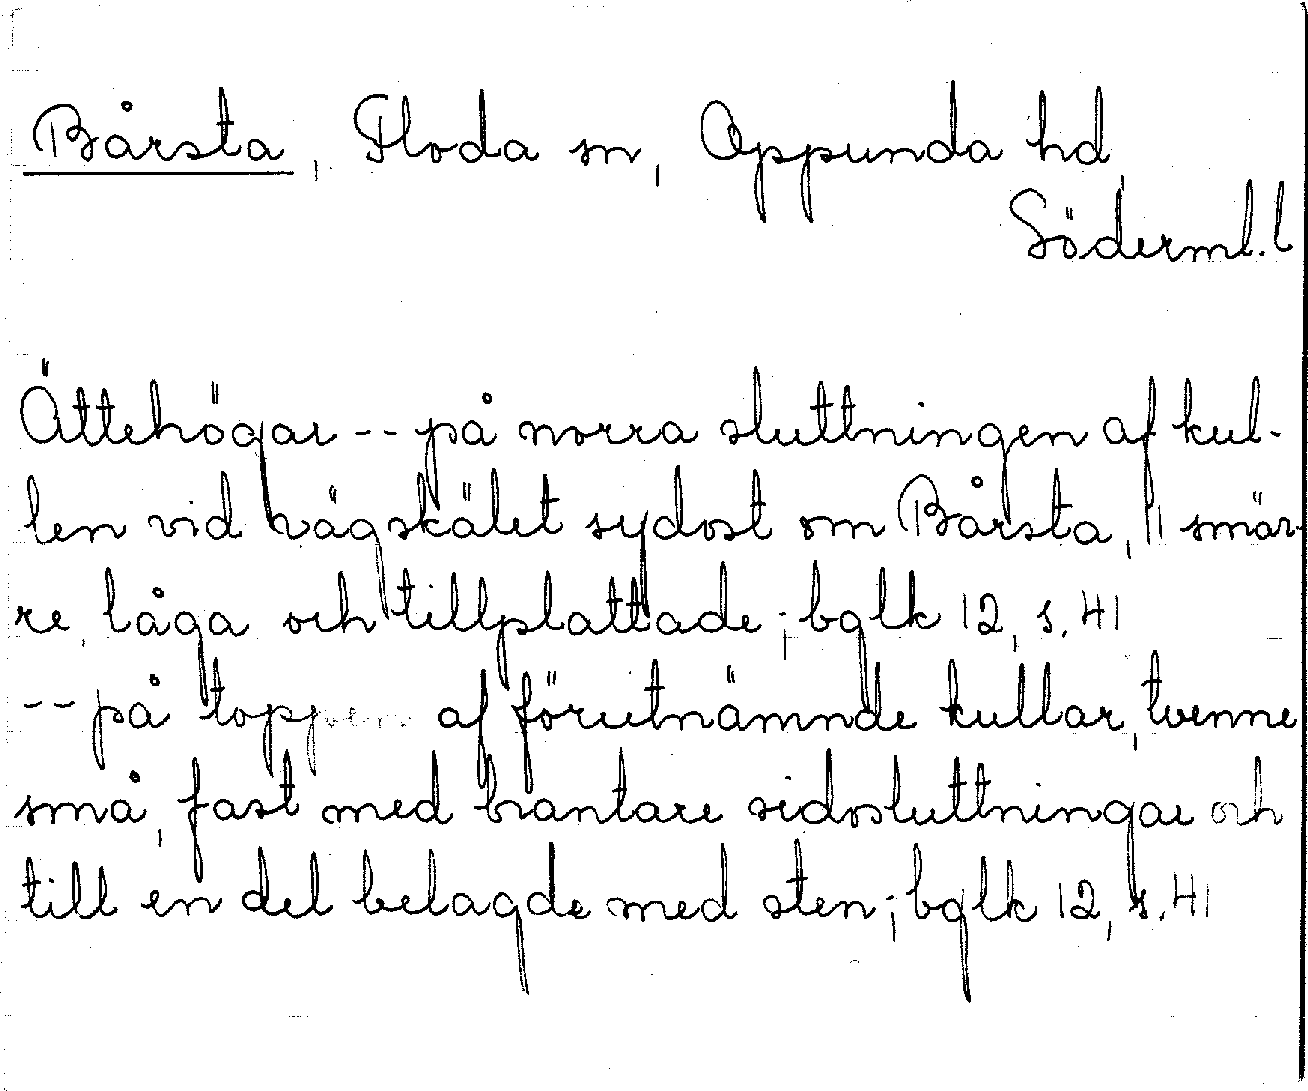 Bårsta, Floda sn, Oppunda hd,
Söderml. l
Ättehögar -- på norra sluttningen af kul-
len vid vägskälet sydost om Bårsta, 11 smär-
re, låga och tillplattade; bglk 12, s. 41
-- på toppen af förutnämnde kullar, tvenne
små, fast med brantare sidosluttningar och
till en del belagde med sten; bglk 12, s. 41